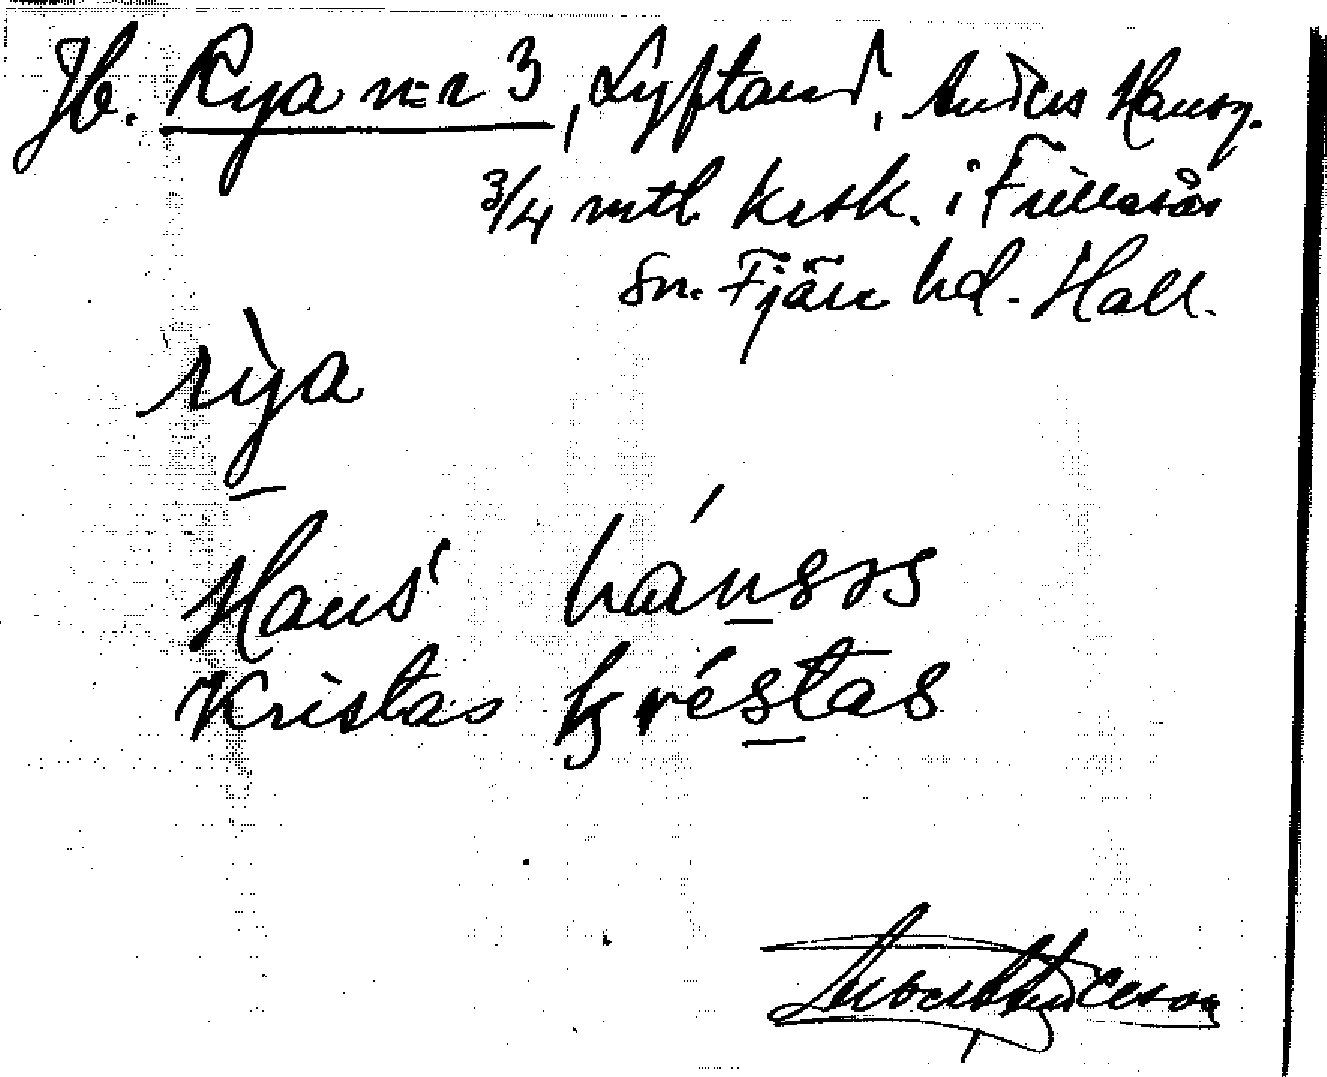 Jb. Rya n:r 3, Lyftand, Anders Hansg.
3/4 mtl. krsk. i Frillesås
Sn. Fjäre hd. Hall.
rỳa
Hans' hánsɷs
Kristas kréstas